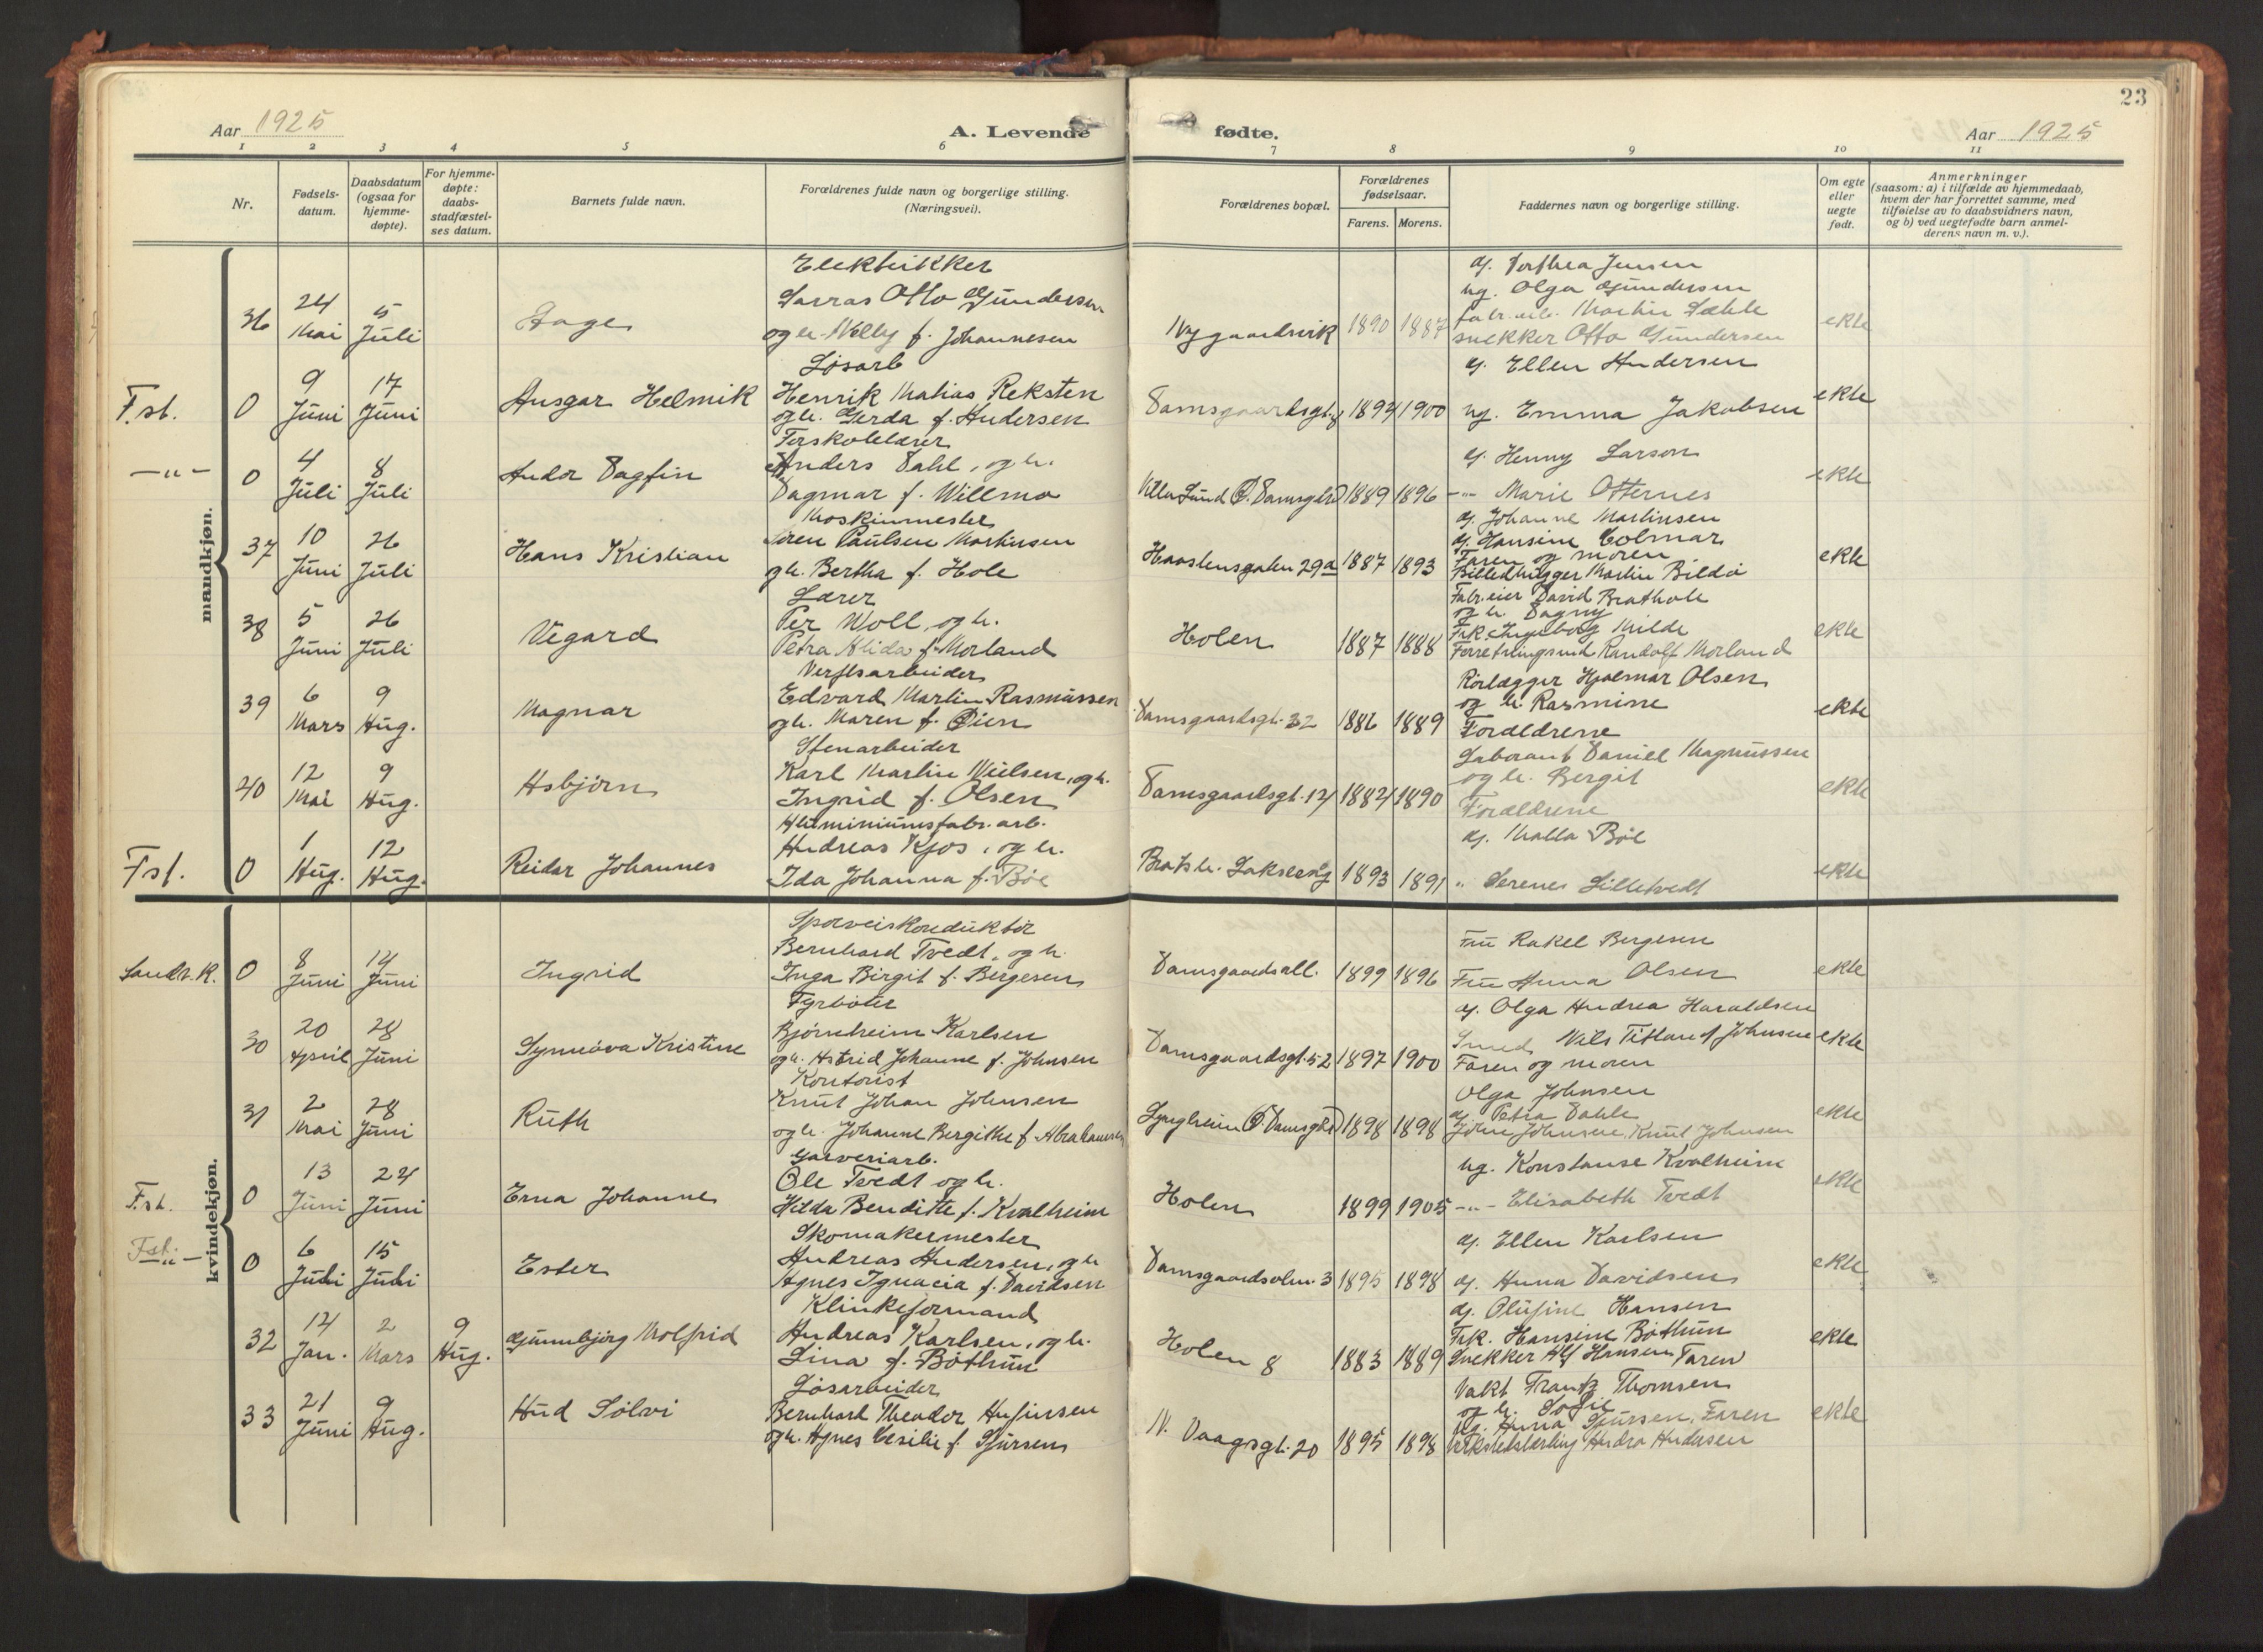 23
Aar 1925
A. Levende fødte.
Aar 1925
1 2 3 4 5 6 7 8 9 10 11
Nr.
Fødsels-
datum.
Daabsdatum
(ogsaa for
hjemme-
døpte).
For hjemme-
døpte:
daabs-
stadfæstel-
ses datum.
Barnets fulde navn.
Forældrenes fulde navn og borgerlige stilling.
(Næringsvei).
Forældrenes bopæl.
Forældrenes
fødselsaar.
Farens. Morens.
Faddernes navn og borgerlige stilling.
Om egte
eller
uegte
født.
Anmerkninger
(saasom: a) i tilfælde av hjemmedaab,
hvem der har forrettet samme, med
tilføielse av to daabsvidners navn,
og b) ved uegtefødte barn anmel-
derens navn m. v.).
mandkjøn.
36
24
Mai
5
Juli
Aage
Elektrikker
Otto Gundersen
og h. Nelly f. Johannesen
Nygaardsvik
1890 1887
g. Dorthea Jensen
ug. Olga Gundersen
fabr.arb. Martin
snekker Otto Gundersen
ekte
F.st.
0
9
Juni
17
Juni
Ansgar Helmik
Løsarb
Henrik Matias Reksten
og h. Gerda f. Andersen
Damsgaardsgt.
1894 1900
g. Ellen Andersen
ug. Emma Jakobsen
ekte
—"—
0
4
Juli
8
Juli
Andor Dagfin
Anders Dahl, og h.
Dagmar f. Willmo
Villa Lund Ø. Damsgård
1889 1896
g. Henny Larson
—"— Marie Otternes
ekte
37
10
Juni
26
Juli
Hans Kristian
Maskinmester
Søren Paulsen Martinsen
og h. Bertha f. Hole
Haastensgaten 29a
1887 1893
g. Johanne Martinsen
g. Hansine Colmar
Faren og moren
Billedhugger Martin Bildø
ekte
38
5
Juni
26
Juli
Vegard
Lærer
Per Woll, og h.
Petra Alida f. Morland
Holen
1887 1888
Fabr.eier David Brathole
og h. Dagny
Frk. Ingeborg Milde
Randolf Morland
ekte
39
6
Mars
9
Aug.
Magnar
Verftsarbeider
Edvard Martin Rasmussen
og h. Maren f. Øien
Damsgaardsgt. 32
1886 1889
Rørlægger Hjalmar Olsen
og h. Rasmine
Forældrene
ekte
40
12
Mai
9
Aug.
Asbjørn
Stenarbeider
Karl Martin Nielsen, og h.
Ingrid f. Olsen
Damsgaardsgt. 14
1884 1890
Laborant Daniel Magnussen
og h. Bergit
Forældrene
ekte
Fst.
0
1
Aug.
12
Aug.
Reidar Johannes
Aluminiumsfabr. arb.
Andreas Kjos, og h.
Ida Johanna f. Bøe
1893 1891
g. Malla Bøe
" Serenes Lilletvedt
ekte
kvindekjøn.
Sandv.K.
0
8
Juni
14
Juni
Ingrid
Sporveiskonduktør
Bernhard Tvedt, og h.
Inga Birgit f. Bergesen
Damsgaardsall.
1899 1896
Fru Rakel Bergesen
Fru Anna Olsen
ekte
30
20
April
28
Juni
Synnøva Kristine
Fyrbøter
Bjørnheim Karlsen
og h. Astrid Johanne f. Johnsen
Damsgaardsgt. 52
1897 1900
g. Olga Andrea Haraldsen
Smed Nils Johnsen
Faren og moren
ekte
31
2
Mai
28
Juni
Ruth
Kontorist
Knut Johan Johnsen
og h. Johanne Bergithe f. Abrahamsen
Lyngheim Ø Damsgård
1898 1898
Olga Johnsen
g. Petra Dahle
John Johnsen. Knut Johnsen
ekte
F.st.
0
13
Juni
24
Juni
Erna Johanne
Garveriarb.
Ole Tvedt og h.
Hilda Benditte f. Kvalheim
Holen
1899 1905
ug. Konstanse Kvalheim
—"— Elisabeth Tvedt
ekte
Fst.
—"—
0
6
Juli
15
Juli
Ester
Skomakermester
Andreas Andersen, og h
Agnes Ignacia f. Davidsen
Damsgaardsalm. 3
1895 1898
g. Ellen Karlsen
g. Anna Davidsen
ekte
32
14
Jan.
2
Mars
9
Aug.
Gunnbjørg Molfrid
Klinkeformand
Andreas Karlsen, og h.
Lina f. Bøthun
Holen 8
1883 1889
g. Olufine Hansen
Frk. Hansine Bøthun
Snekker Alf Hansen Faren
ekte
33
21
Juni
9
Aug.
Aud Sølvi
Løsarbeider
Bernhard Theodor Anfinsen
og h. Agnes Cesilie f. Sjursen
N. Vaagsgt. 20
1895 1898
Vakt Frantz Thomsen
og h. Sofie
g. Anna Sjursen. Faren
ekte